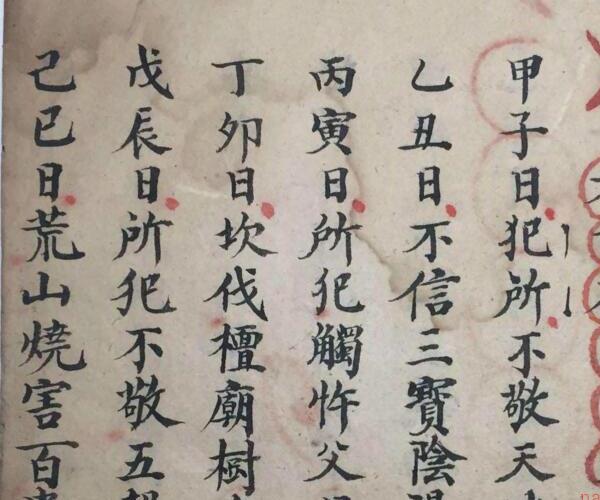 甲子日犯所不敬天
乙丑日不信三寶陰
丙寅日所犯觸忤父
丁卯日坎伐檀廟樹
戊辰日所犯不敬五
己巳日荒山燒害百